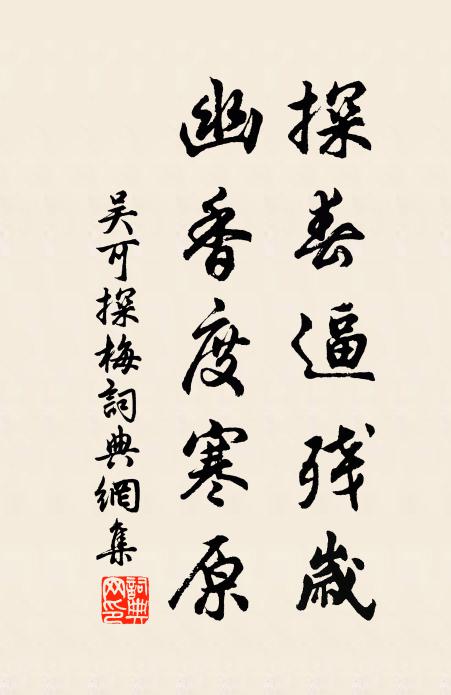 探春逼残歲
幽香度寒原
吴可探梅詞典網集
詞典网印